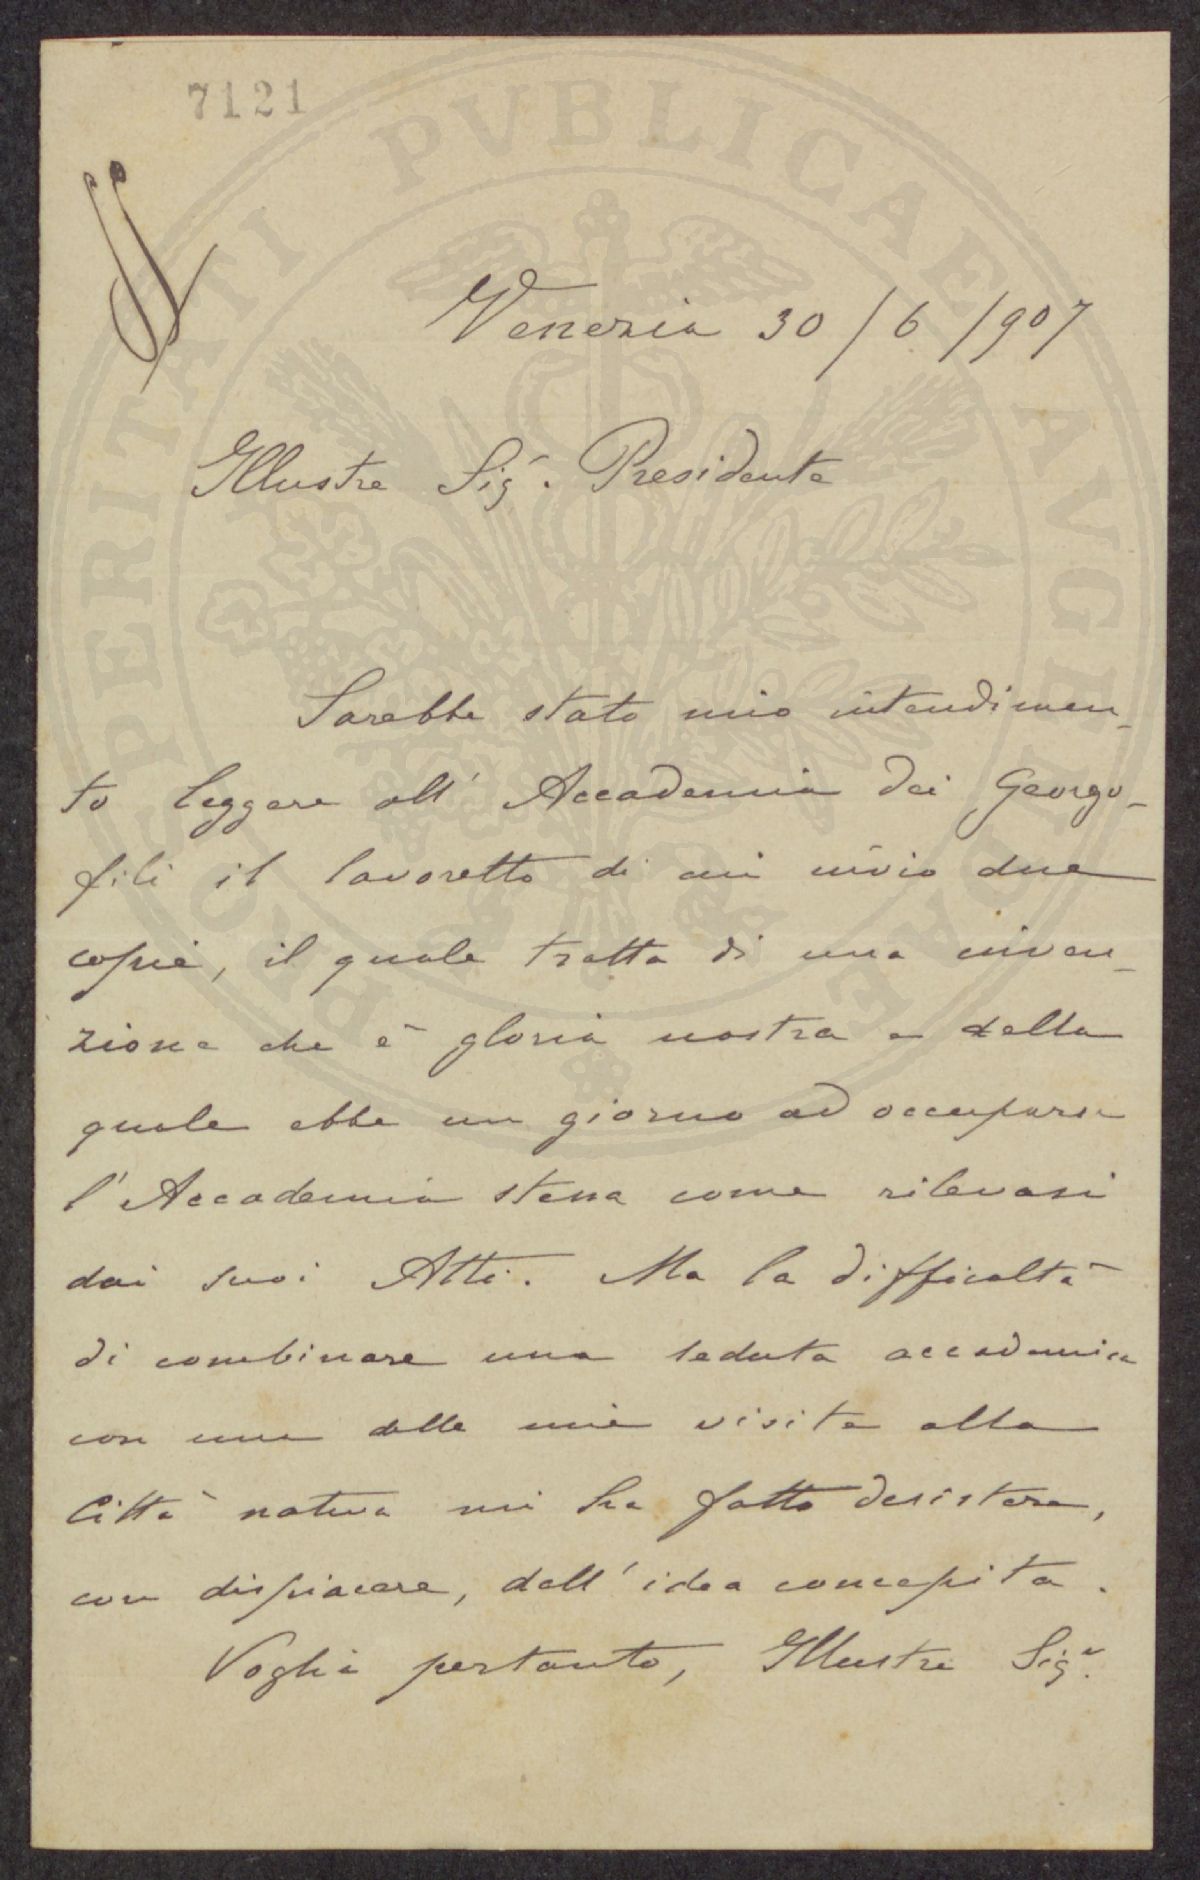 7121
Venezia 30/6/907
Illustre Sigr. Presidente
Sarebbe stato mio intendimen-
to leggere all' Accademia dei Georgo-
fili il lavoretto di cui invio due
copie, il quale tratta di una inven-
zione che è gloria nostra e della
quale ebbe un giorno ad occuparsi
l'Accademia stessa come rilevasi
dai suoi Atti. Ma la difficoltà
di combinare una seduta accademica
con una delle mie visite alla
Città nativa mi ha fatto desistere,
con dispiacere, dall'idea concepita.
Voglia pertanto, Illustre Sigr.
PROSPERITATI PVBLICAE AVGENDAE